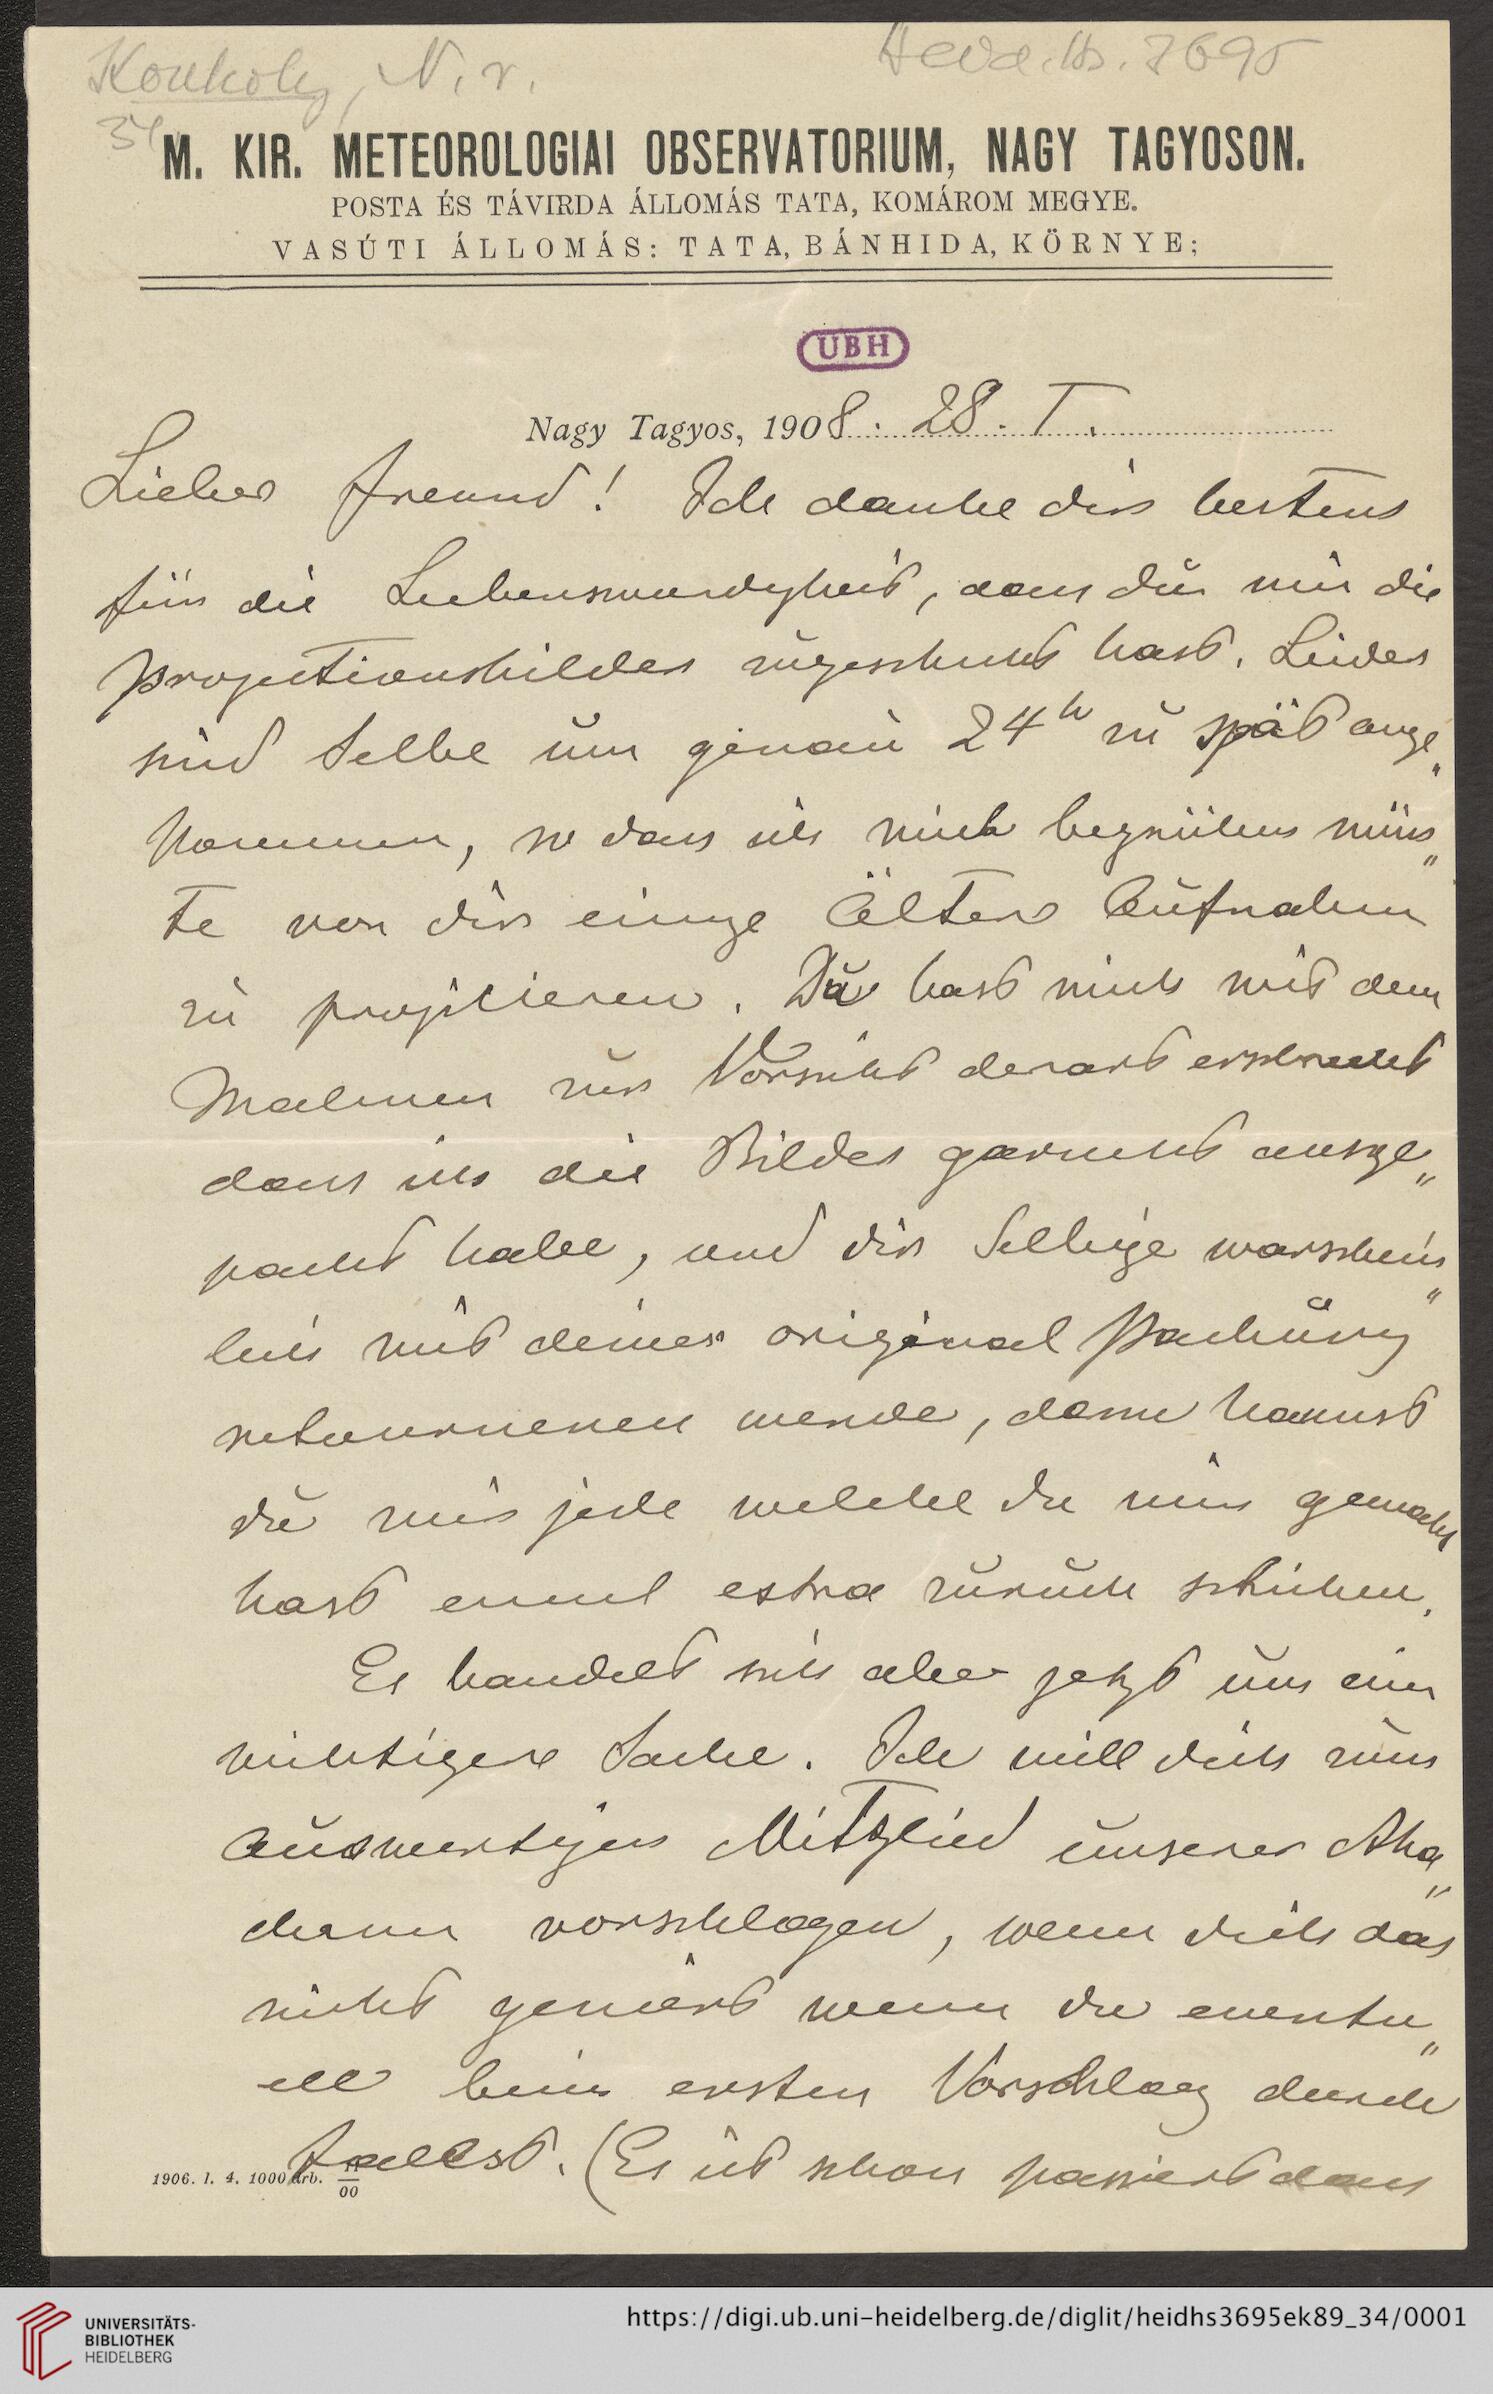 Konkoly, N. v.
Heid. Hs. 3695
34
M. KIR. METEOROLOGIAI OBSERVATORIUM, NAGY TAGYOSON.
POSTA ÉS TÁVIRDA ÁLLOMÁS TATA, KOMÁROM MEGYE.
VASÚTI ÁLLOMÁS: TATA, BÁNHIDA, KÖRNYE;
UBH
Nagy Tagyos, 1908. 28. I.
Lieber Freund! Ich danke dir bestens
für die Liebenswurdigkeit, dass du mir die
Projectionsbilder zugeschickt hast. Leider
sind Selbe um genau 24h zu spät ange„
kommen, so dass ich mich begnügen müss„
te von dir einige Ältere Aufnahmen
zu projicieren. Du hast mich mit dem
Malmen zur Vorsicht derart erschreckt
dass ich die Bilder garnicht ausge„
packt habe, und dir Selbige warschein„
lich mit deiner original Packung
retournieren werde, dann kannst
du mir jede welche du mir gemacht
hast extra zurück schicken.
Es handelt sich aber jetzt um eine
wichtigere Sache. Ich will dich zum
auswertigen Mitglied unserer Aka„
demie vorschlagen, wenn dich das
nicht geniert wenn du eventu„
ell beim ersten Vorschlag durch
fallst. (Es ist schon passiert dass
1906. I. 4. 1000 drb. 11/00
UNIVERSITÄTS-
BIBLIOTHEK
HEIDELBERG
https://digi.ub.uni-heidelberg.de/diglit/heidhs3695ek89_34/0001